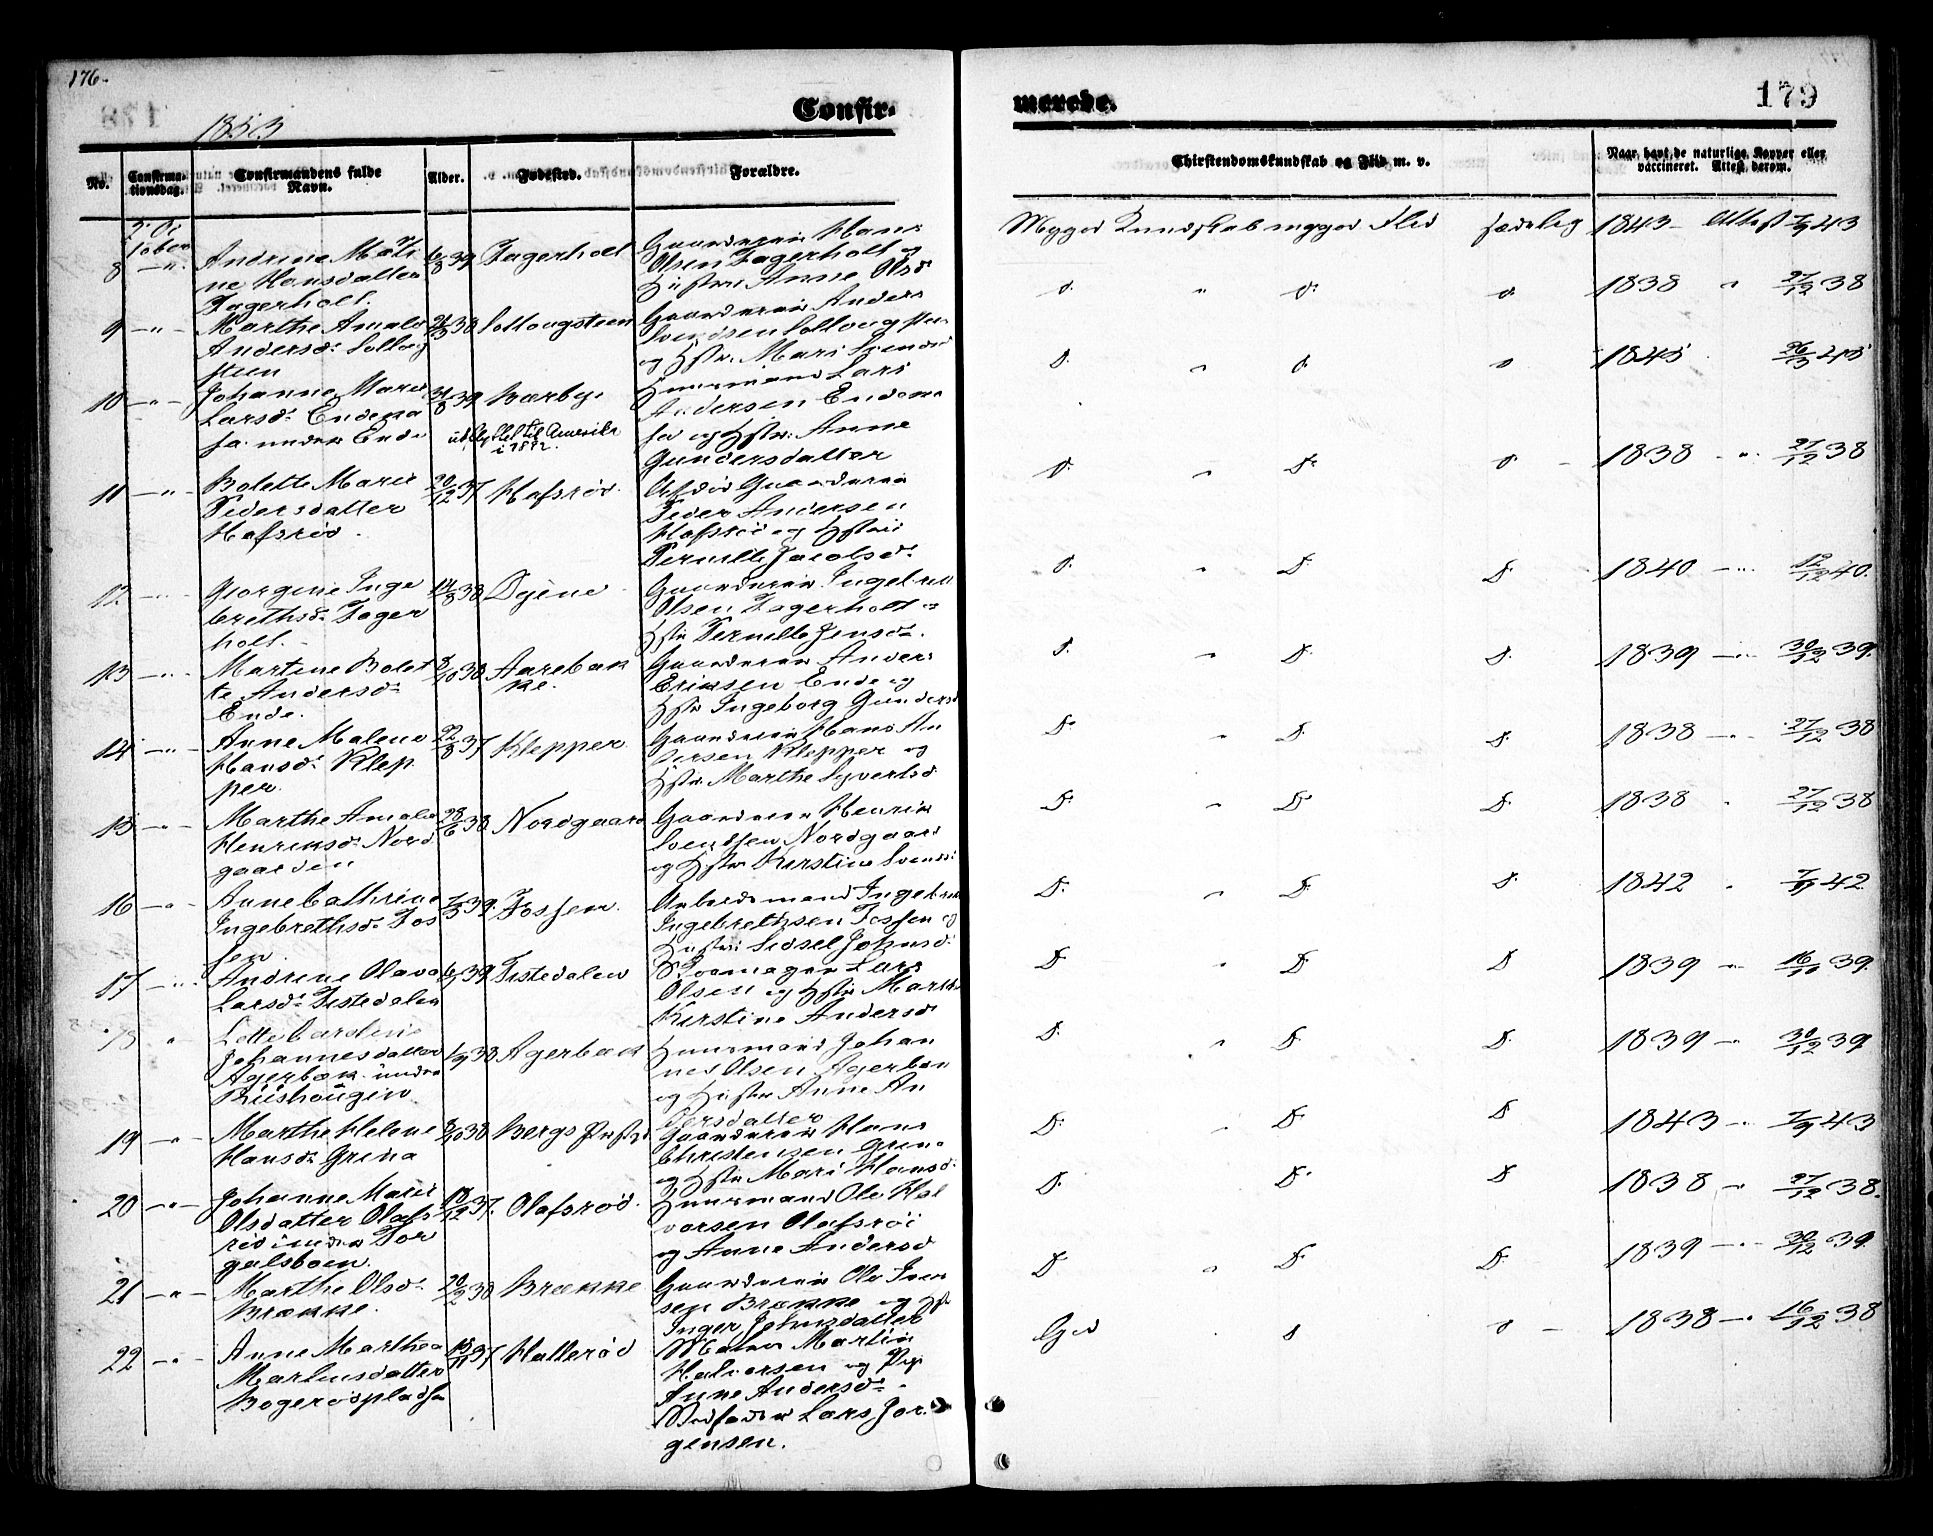 176.
179
1853
Confir-
merede.
No.
Confirma-
tionsdag.
Confirmandens fulde
Navn.
Alder.
Fødested.
Forældre.
Chirstendomskundskab og Flid m. v.
Naar havt de naturlige Kopper eller
vaccineret. Attest derom.
8 Andrine Mati
ne Hansdatter
Fagerholt.
6/8 39 Fagerholt
Gaardeier Hans
Olsen Fagerholt og
Hustru Anne Olsd
Meget Kundskab meget Flid sædelig 1843 - Attest 7/9 43
9 -"- Marthe Amalie
Andersd: Solloug
steen
38 Sollougsteen
Gaardeier Anders
Svendsen Sollougsteen
og Hstr. Mari Svendsd
D. " D. D. 1838 " 27/12 38
10 -"- Johanne Marie
Larsd: Endena
sa. under Ende
31/8 39 Bærbye
udflyttet til Amerika
i 1882.
Huusmand Lars
Andersen Endena
sa og Hstr: Anne
Gundersdatter
D. " D. D. 1845 26/3 45
11 -"- Bolette Marie
Pedersdatter
Hafsrød.
20/12 37 Hafsrød.
Afdød Gaardeier
Peder Andersen
Hafsrød og Hstru
Pernille Jacobsd:
D. " D. D. 1838 -"- 27/12 38
12. -"- Georgine Inge
brethsd: Fager
holt.
14/8 38 Dyene
Gaardeier Ingebret
Olsen Fagerholt og
Hstr Pernille Jensd:
D. " D. D. 1840 -"- 12/12 40.
13 -"- Martine Bolet
te Andersd:
Ende.
8/10 38 Aarebak
ke.
Gaardeier Anders
Eriksen Ende og
Hstr Ingeborg Gundersd
D. " D. D. 1839 -"- 30/12 39.
14 -"- Anne Malene
Hansd: Klep
per.
22/8 37 Klepper.
Gaardeier Hans An
dersen Klepper og
Hstr. Marthe Syvertsd.
D. " D. D. 1838 -"- 27/12 38
15 -"- Marthe Amalie
Henriksd: Nord
gaarden
28/6 38 Nordgaard
Gaardeier Henrik
Svendsen Nordgaard
og Hstr Kirstine Svensd:
D. " D. D. 1838 " 27/12 38
16 -"- Anne Cathrine
Ingebrethsd: Fos
sen.
7/3 39. Fossen.
Arbeidsmand Ingebret
Ingebrethsen Fossen og
Hustru Sidsel Johnsd:
D. " D. D. 1842 " 42
17 -"- Andrine Olava
Larsd: Tistedalen
39 Tistedalen
Skoemager Lars
Olsen og Hstr Marthe
Kirstine Andersd
D. " D. D. 1839 -"- 16/10 39.
18 " Lette Carstine
Johannesdatter
Agerbæk. under
Riishaugen
1/9 38 Agerbæk
Huusmand Johan
nes Olsen Agerbæk
og Hustr Anne An
dersdatter
D. " D. D. 1839 -"- 30/12 39
19 -"- Marthe Helene
Hansd: Grena
8/10 38 Bergs Præstgd
Gaardeier Hans
Christensen Grena
og Hstr Mari Hansd:
D. " D. D. 1843 -"- 7/9 43
20 -"- Johanne Marie
Olsdatter Olafs
rød under Tor
galsboen.
18/12 37. Olafsrød.
Huusmand Ole Hal
vorsen Olafsrød
og Anne Andersd
D. D. D. 1838 -"- 27/12 38.
21 -"- Marthe Olsd:
Brække.
20/2 38 Brække
Gaardeier Ole Iver
sen Brække og Hstr
Inger Johnsdatter
D. " D. D. 1839 -"- 30/12 39.
22 -"- Anne Marthea
Martinsdatter
Bogerødpladsen
15/11 37 Hallerød
Matros Martin
Halvorsen og Pige
Anne Andersd:
Stedfader Lars Jør
gensen.
God D. D. 1838 -"- 16/12 38